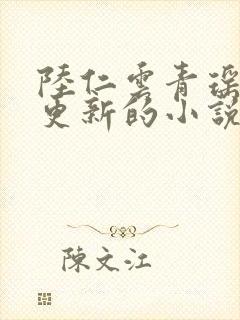 陸仁雲青瑶
更新的小說
陳文江